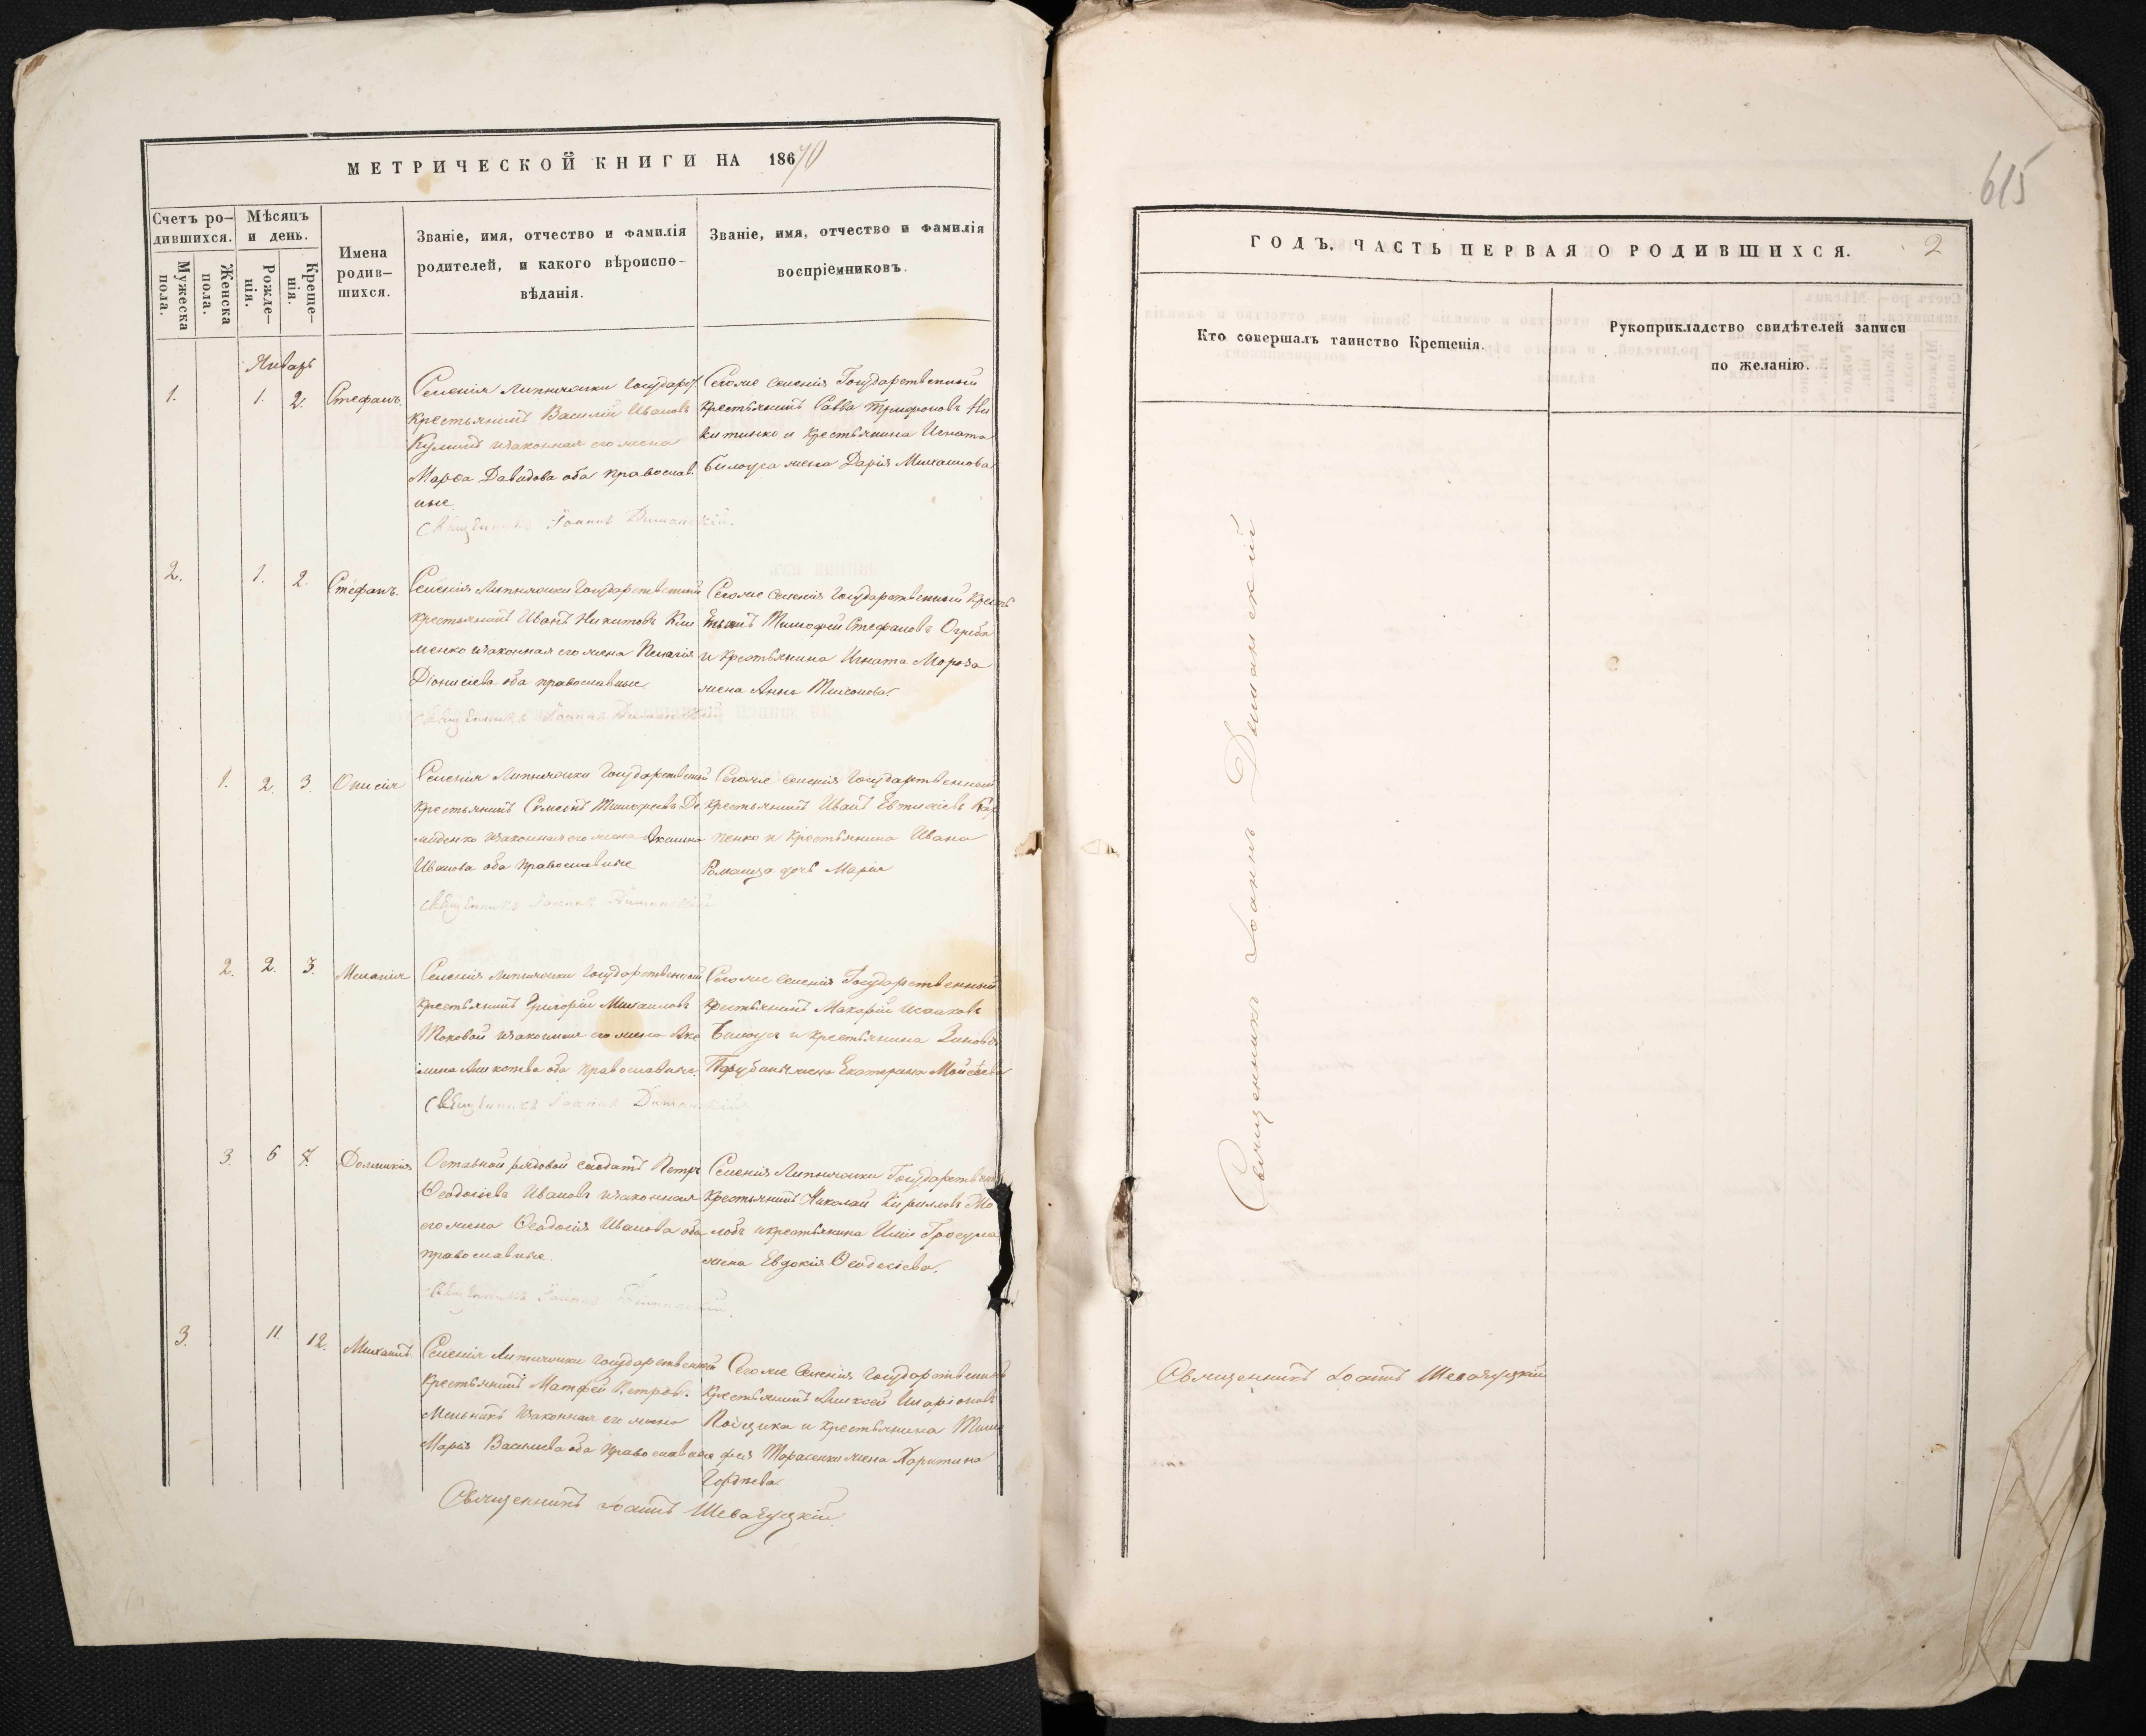 МЕТРИЧЕСКОЙ КНИГИ НА 18670
Счетъ ро-
дившихся.
Мужеска
пола.
Женска
пола.
Мѣсяцъ
и день.
Рожде-
нія.
Креще-
нія.
Имена
родив-
шихся.
Званіе, имя, отчество и фамилія
родителей, и какого вѣроиспо-
вѣданія.
Званіе, имя, отчество и фамилія
воспріемниковъ.
Январь
1. 1. 2. Стефанъ.
Селенія Липняжки Государст.
крестьянинъ Василій Ивановъ
законная его жена
Марѳа Давидова оба православ-
ные.
Священникъ Іоаннъ
Тогоже селенія Государственный
крестьянинъ Савва Трифоновъ Ни
китенко и крестьянина Игната
Билоуса жена Дарія Михаилова
2. 1. 2. Стефанъ.
Селенія Липняжки Государственный
крестьянинъ Иванъ Никитовъ Кли
менко законная его жена Пелагія
Діонисіева оба православные.
Священникъ Іоаннъ
Тогоже селенія Государственный крест
Тимофей Стефановъ
и крестьянина Игната Мороза
жена Анна
1. 2. 3. Онисія
Селенія Липняжки Государственный
крестьянинъ Симеонъ Тимофеевъ Де
миденко законная его жена Акилина
Иванова оба православные
Священникъ Іоаннъ
Тогоже селенія Государственный
крестьянинъ Иванъ Евтихіевъ Кар
пенко и крестьянина Ивана
дочь Марія
2. 2. 3. Меланія
Селенія Липняжки Государственный
крестьянинъ Григорій Михаиловъ
Токовой законная его жена Аки
лина оба православные.
Священникъ Іоаннъ
Тогоже селенія Государственный
крестьянинъ Макарій Исааковъ
Билоусъ и крестьянина
жена Екатерина Моисеева
3. 6 7. Домникія
рядовой солдатъ Петръ
Ѳеодосіевъ Ивановъ законная
его жена Ѳеодосія Иванова оба
православные.
Священникъ Іоаннъ
Селенія Липняжки Государствен
крестьянинъ Николай Кирилловъ
и крестьянина
жена Евдокія Ѳеодосіева.
3. 11. 12. Михаилъ.
Селенія Липняжки Государственный
крестьянинъ Матфей Петровъ
Мельникъ законная его жена
Марія Василіева оба православные
Тогоже селенія Государственный
крестьянинъ Алексей Иларіоновъ
и крестьянина Тимо
фея Тарасенка жена Харитина
Гордѣева.
Священникъ Іоаннъ
615
ГОДЪ, ЧАСТЬ ПЕРВАЯ О РОДИВШИХСЯ.
2
Кто совершалъ таинство Крещенія.
Рукоприкладство свидѣтелей записи
по желанію.
Священникъ Іоаннъ
Священникъ Іоаннъ